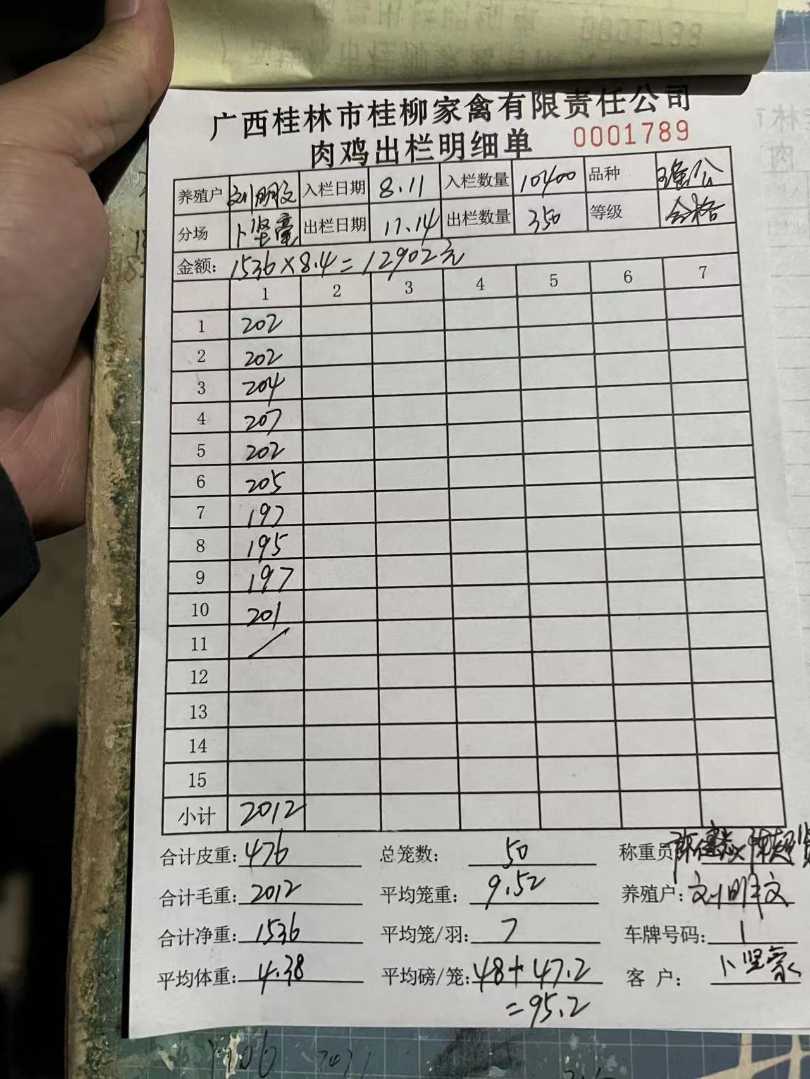 广西桂林市桂柳家禽有限责任公司
肉鸡出栏明细单 0001789
养殖户 刘明文 入栏日期 8.11 入栏数量 10400 品种
分场 卜坚豪 出栏日期 11.14 出栏数量 350 等级 合格
金额: 1536×8.4=12902元
1 2 3 4 5 6 7
1 202
2 202
3 204
4 207
5 202
6 205
7 197
8 195
9 197
10 201
11 /
12
13
14
15
小计 2012
合计皮重: 476 总笼数: 50 称重员
合计毛重: 2012 平均笼重: 9.52 养殖户: 刘明文
合计净重: 1536 平均笼/羽: 7 车牌号码: 1
平均体重: 4.38 平均磅/笼: 48+47.2 客户: 卜坚豪
=95.2